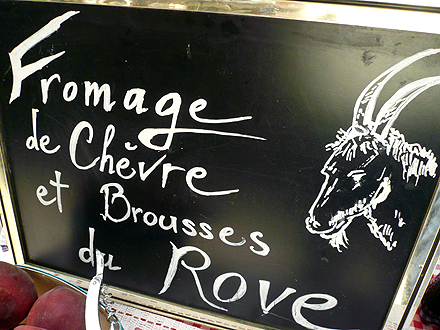 Fromage
de Chèvre
et Brousses
du Rove